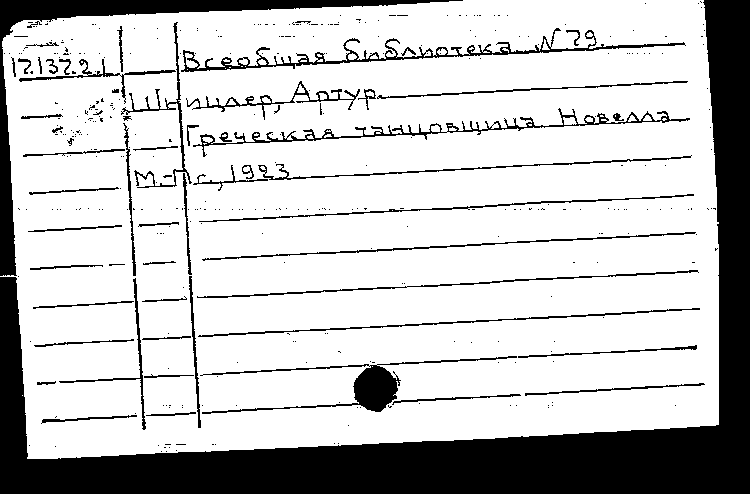 17.137.2.1 Всеобщая библиотека N 79.
Шницлер, Артур.
Греческая танцовщица Новелла
М.-Пг., 1923